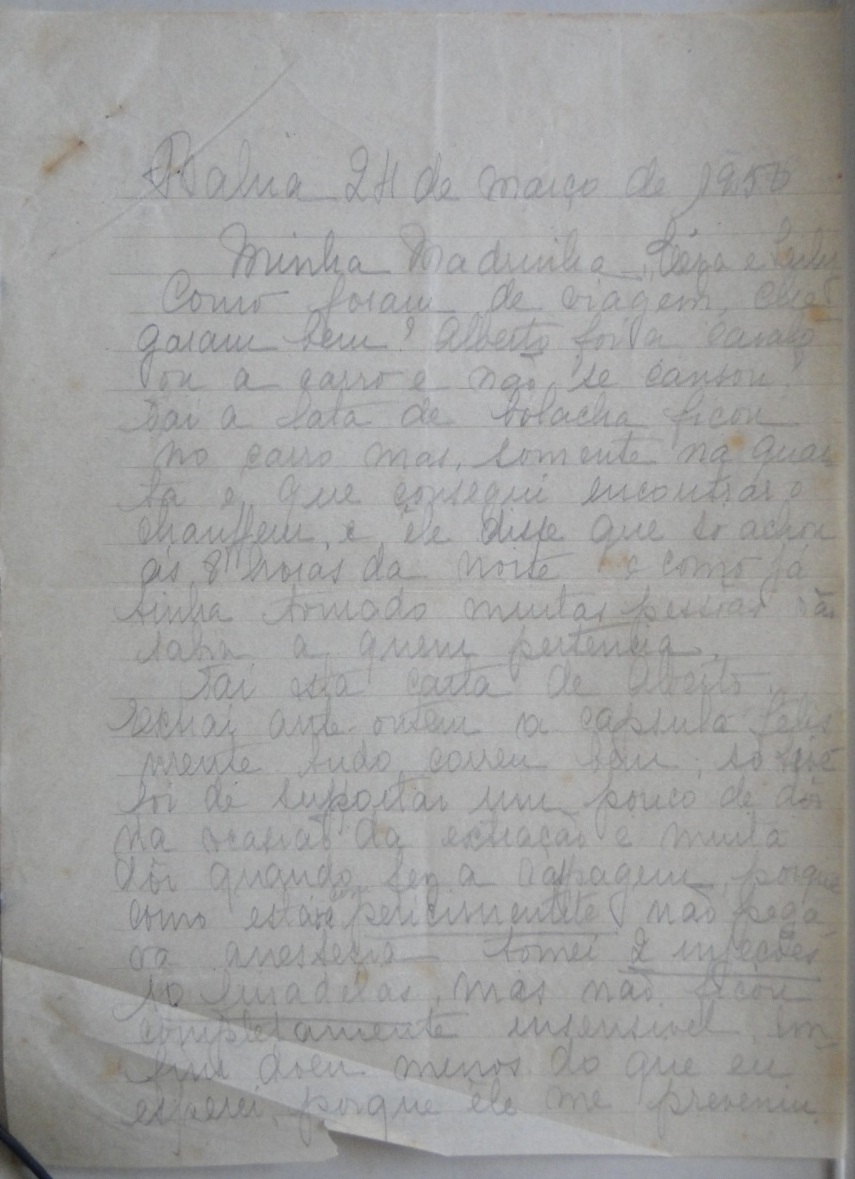 Bahia 24 de março de 1950
Minha Madrinha, e
Como foram de viagem, che-
garam bem? Alberto foi a cavalo
ou a carro e não se cansou?
Vai a lata de bolacha ficou
no carro mas, somente na quar
ta e que consegui encontrar o
chauffeur, e êle disse que só achou
ás 8 horas da noite e como já
tinha tomado muitas pessoas não
sabia a quem pertencia.
Vai esta carta de Alberto.
Extrai ante ontem a capsula feliz
mente tudo correu bem, só
foi de suportar um pouco de dôr
na ocasião da extração e muita
dôr quando fez a raspagem, porque
como estava com pericimentite não pega-
va anestesia tomei 2 injeções
so furadelas, mas não ficou
completamente insensivel, em
fim doeu menos do que eu
esperei, porque êle me preveniu